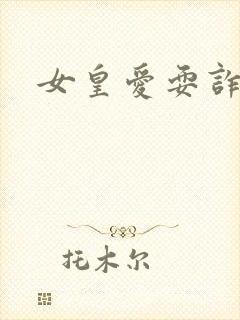 女皇愛耍詐
托木尔